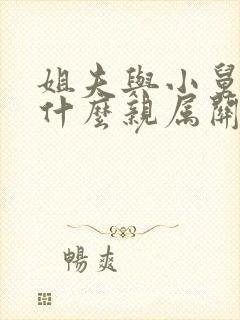 姐夫與小舅
什麼親屬關
暢爽